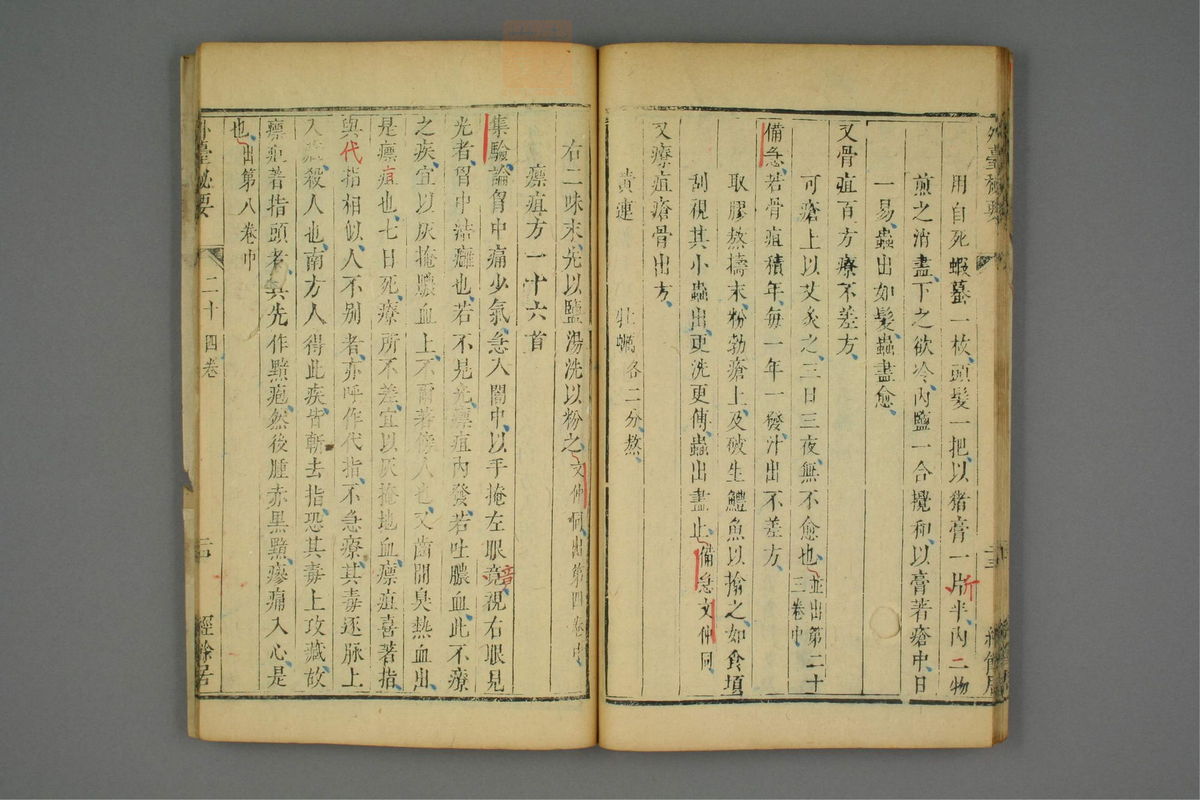 用自死蝦蟇一枚頭髮一把以猪膏一片半內二物
斤
煎之消盡下之欲冷內鹽一合攪和以膏著瘡中日
一易蟲出如髮蟲盡愈
又骨疽百方療不差方
可瘡上以艾炙之三日三夜無不愈也並出第二十三卷中
備急若骨疽積年每一年一發汁出不差方
取膠熬擣末粉勃瘡上及破生鱧魚以揄之如食頃
刮視其小蟲出更洗更傅蟲出盡止備急文仲同
又療疽瘡骨出方
黃連　牡蠣各二分熬
右二味末先以鹽湯洗以粉之文仲同出第四卷中
瘭疽方一十六首
集驗論胷中痛少氣急入闇中以手掩左眼竟視右眼見
音
光者胷中結癰也若不見光瘭疽內發若吐膿血此不療
之疾宜以灰掩膿血上不爾著傍人也又齒間臭熱血出
是瘭疽也七日死療所不差宜以灰掩地血瘭疽喜著指
與代指相似人不別者亦呼作代指不急療其毒逐脉上
入藏殺人也南方人得此疾皆斬去指恐其毒上攻藏故
瘭疽著指頭者其先作黶疱然後腫赤黑黶瘮痛入心是
也出第八卷中
外臺秘要　二十四卷　經餘居